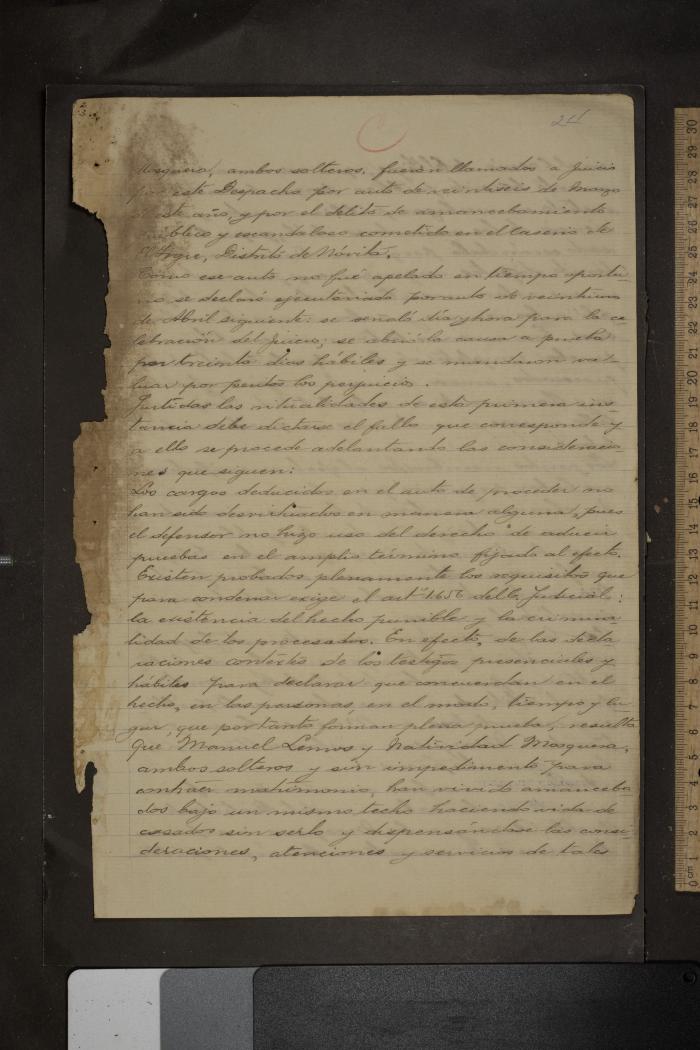 24
Mosquera, ambos solteros, fueron llamados a juicio
por este Despacho por auto de veintiseis de Marzo
de este año, y por el delito de amancebamiento
público y escandaloso cometido en el Caserio de
Distrito de Nóvita.
Como ese auto no fué apelado en tiempo oportu-
no se declaró ejecutoriado por auto de veintiuno
de Abril siguiente: se señaló dia y hora para la ce-
lebración del juicio; se abrió la causa a prueba
por treinta dias hábiles y se mandaron va-
luar por peritos los perjuicios.
Surtidas las ritualidades de esta primera ins-
tancia debe dictarse el fallo que corresponde y
a ello se procede adelantando las consideracio-
nes que siguen:
Los cargos deducidos en el auto de proceder no
han sido desvirtuados en manera alguna, pues
el defensor no hizo uso del derecho de aducir
pruebas en el amplio término fijado al efecto.
Existen probados plenamente los requisitos que
para condenar exige el artº 1656 del C. Judicial:
la existencia del hecho punible y la crimina-
lidad de los procesados. En efecto, de las decla
raciones contestes de los testigos presenciales y
hábiles para declarar que concuerdan en el
hecho, en las personas, en el modo, tiempo y lu-
gar, que por tanto forman plena prueba, resulta
que Manuel Lemos y Natividad Mosquera,
ambos solteros y sin impedimento para
contraer matrimonio, han vivido amanceba
dos bajo un mismo techo haciendo vida de
casados sin serlo y dispensándose las consi-
deraciones, atenciones y servicios de tales
0 cm 1 2 3 4 5 6 7 8 9 10 11 12 13 14 15 16 17 18 19 20 21 22 23 24 25 26 27 28 29 30